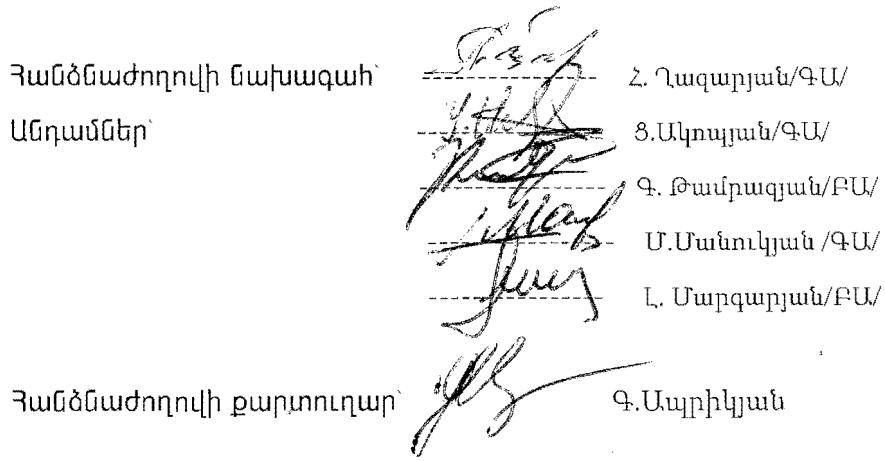 Հանձնաժողովի նախագահ՝ Հ. Ղազարյան/ԳԱ/
Անդամներ՝ Ց.Ակոպյան/ԳԱ/
Գ. Թամրազյան/ԲԱ/
Մ.Մանուկյան /ԳԱ/
Լ. Մարգարյան/ԲԱ/
Հանձնաժողովի քարտուղար՝ Գ.Ապրիկյան